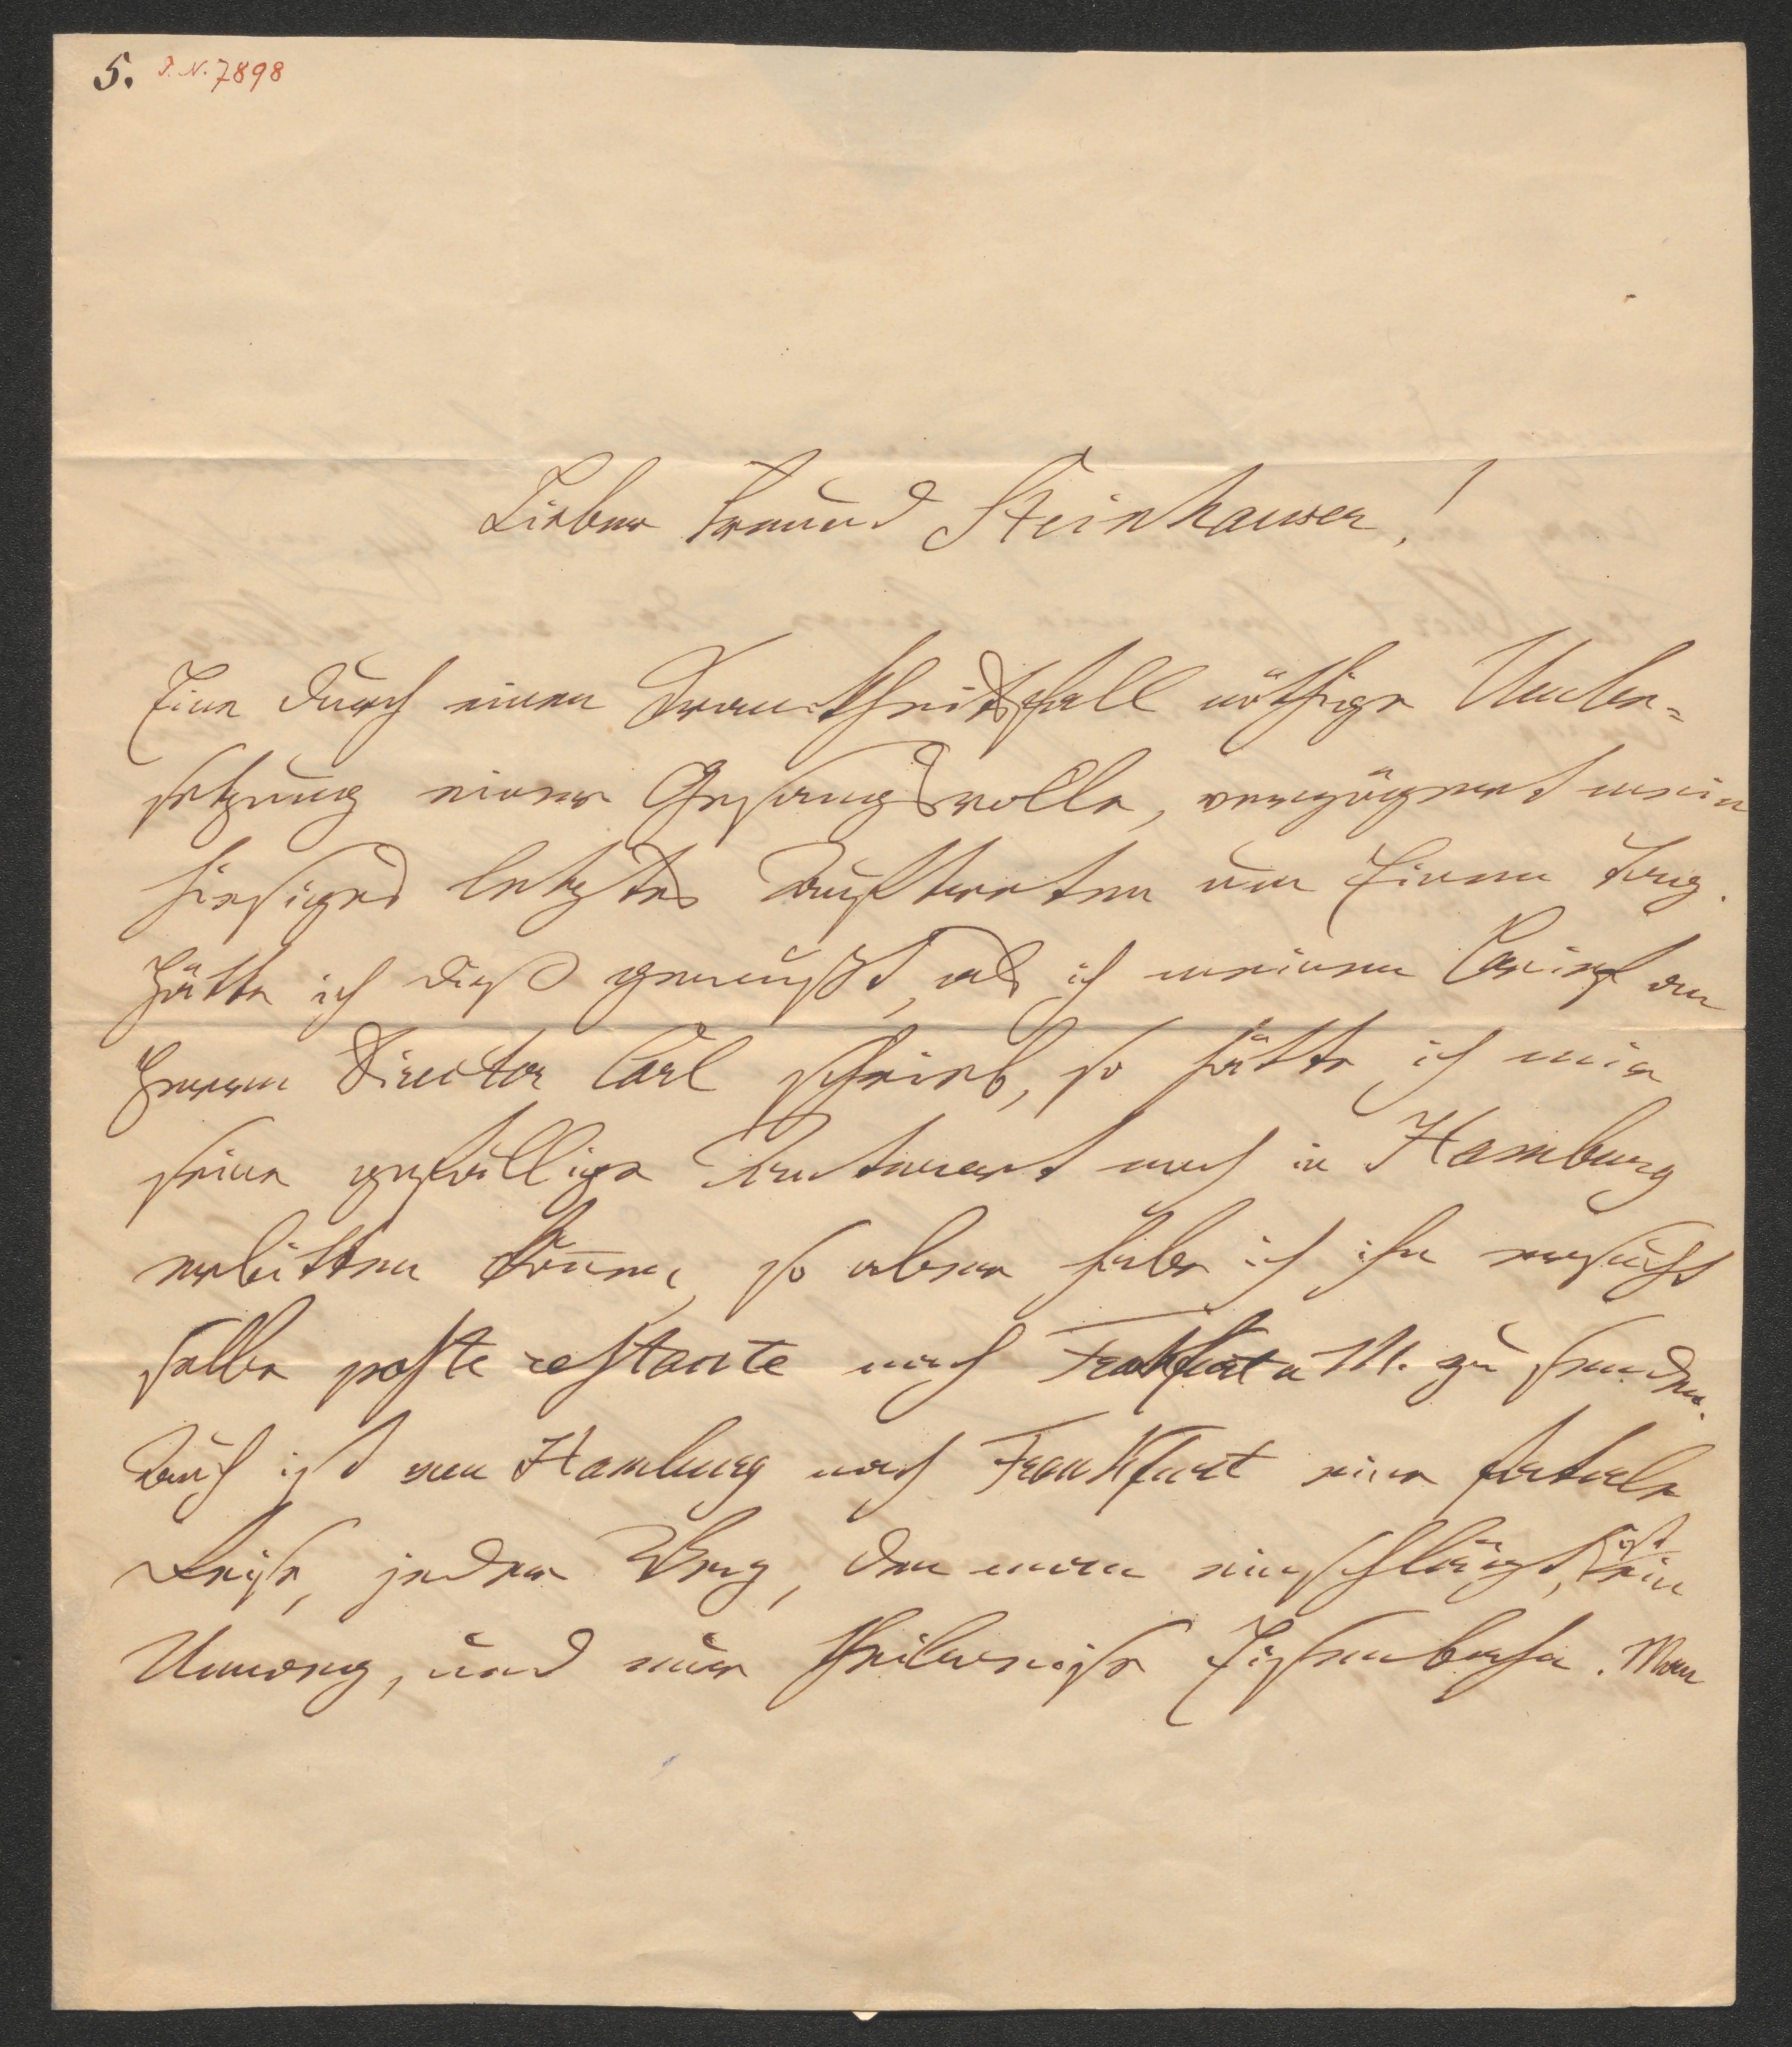 5. I. N. 7898
Lieber Freund Steinhauser!
Eine durch einen Krankheitsfall nöthige Umbe=
setzung einer Gesangsrolle, verzögert mein
hiesiges letztes Auftreten um Einen Tag.
Hätte ich dieß gewußt, als ich meinen Brief an
Herrn Director Carl schrieb, so hätte ich mir
seine gefällige Antwort nach Hamburg
erbitten können, so aber habe ich ihn ersucht
selbe poste restante nach Frankfurt a M. zu senden.
Auch ist von Hamburg nach Frankfurt eine fatale
Reise, jeder Weg, den man einschlägt, ist ein
Umweg, und nur theilweise Eisenbahn. Man